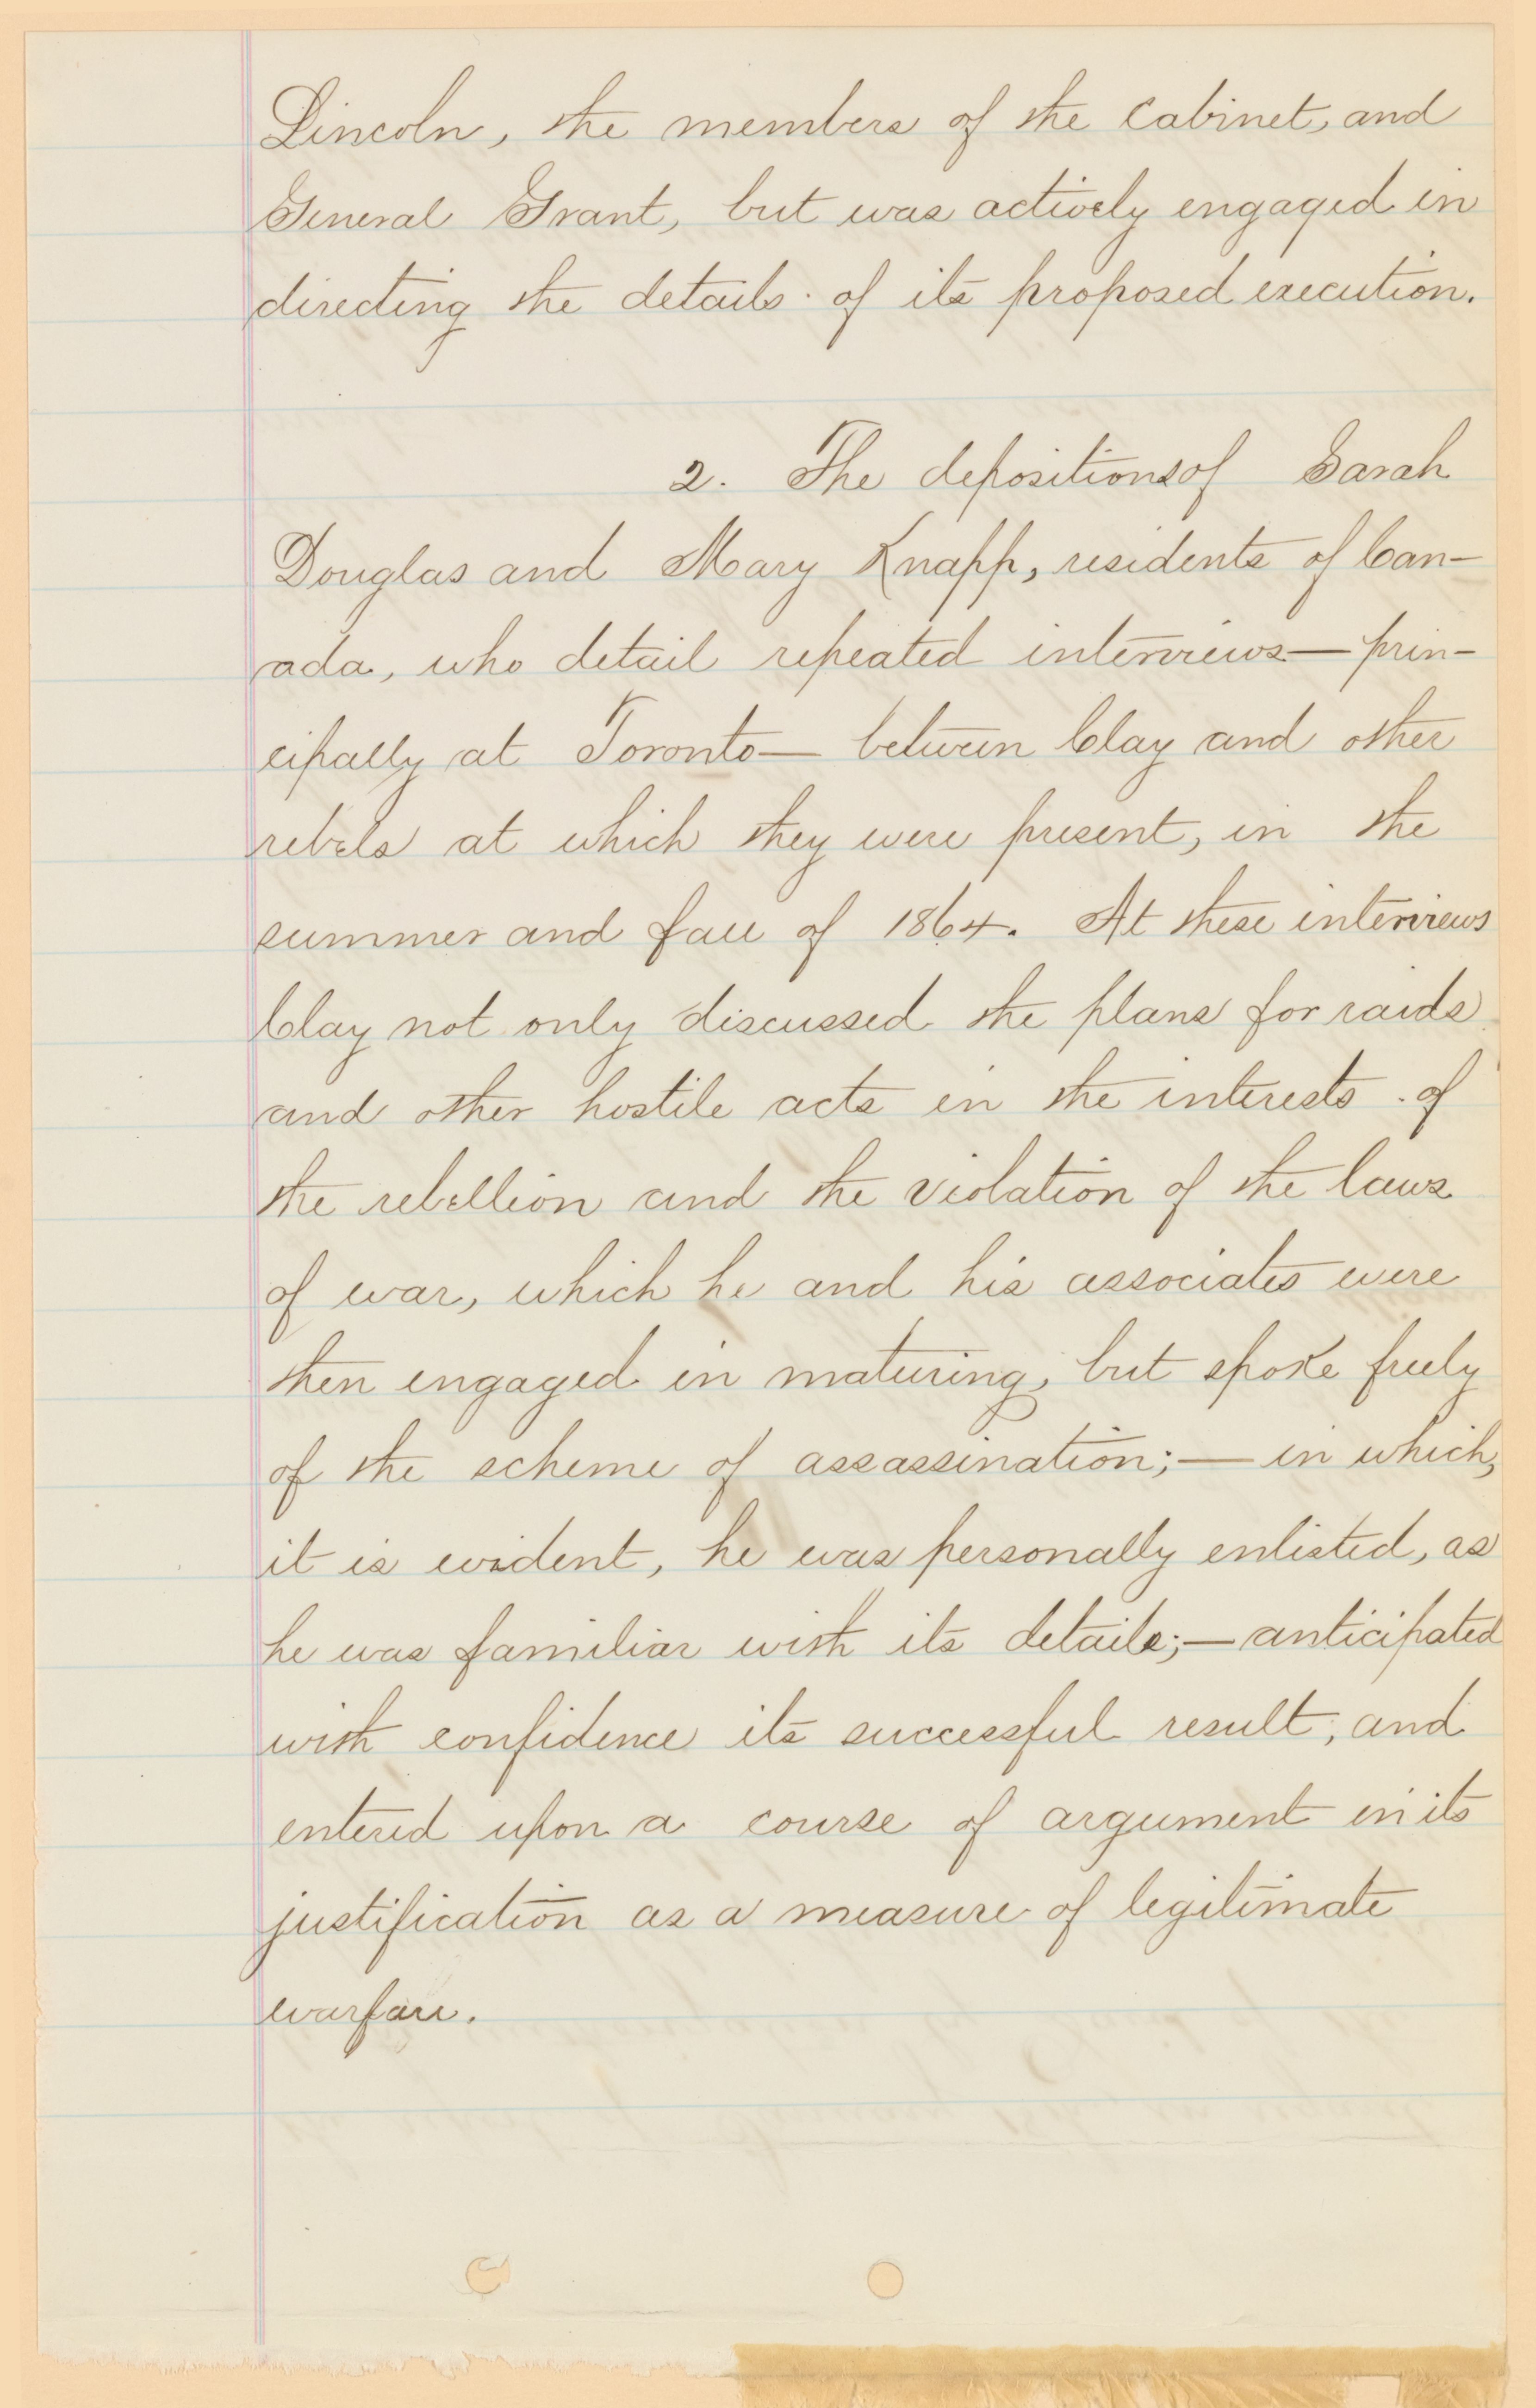 Lincoln, the members of the Cabinet, and
General Grant, but was actively engaged in
directing the details of its proposed execution.
2. The depositions of Sarah
Douglas and Mary Knapp, residents of Can-
ada, who detail repeated interviews — prin-
cipally at Toronto — between Clay and other
rebels at which they were present, in the
summer and fall of 1864. At these interviews
Clay not only discussed the plans for raids
and other hostile acts in the interests of
the rebellion and the violation of the laws
of war, which he and his associates were
then engaged in maturing, but spoke freely
of the scheme of assassination; — in which,
it is evident, he was personally enlisted, as
he was familiar with its details; — anticipated
with confidence its successful result, and
entered upon a course of argument in its
justification as a measure of legitimate
warfare.